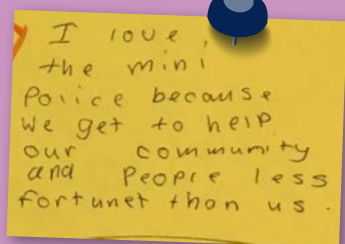 I love,
the mini
Police because
We get to help
our community
and People less
fortunet than us.